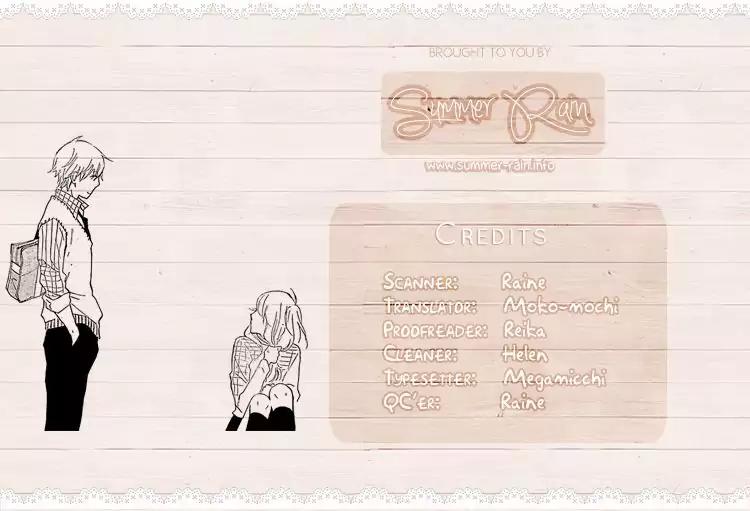 BROUGHT TO YOU BY
Summer Rain
www.summer-rain.info
CREDITS
SCANNER: Raine
TRANSLATOR: Moko-mochi
PROOFREADER: Reika
CLEANER: Helen
TYPESETTER: Megamicchi
QC'ER: Raine